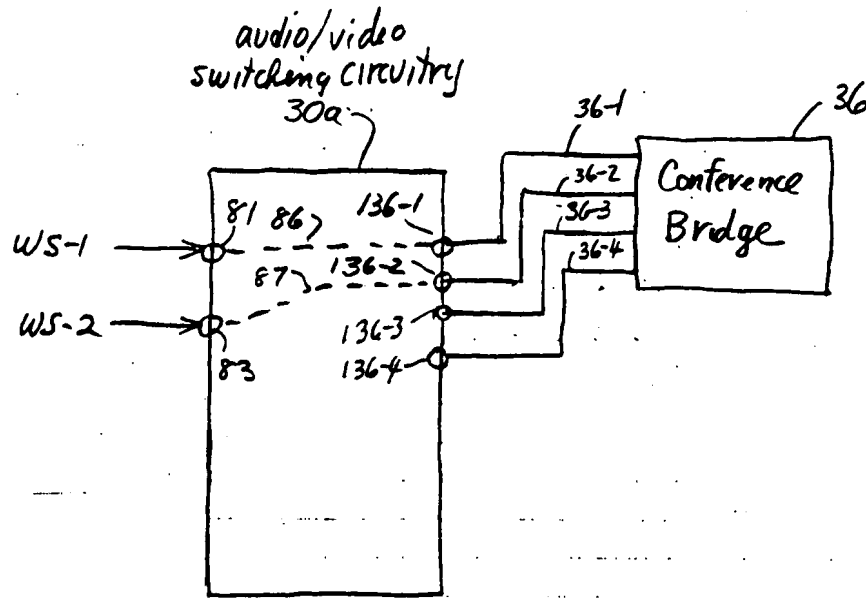 audio/video
switching circuitry
30a
36-1
36
36-2
Conference
36-3
Bridge
36-4
81
86
136-1
WS-1
87
136-2
WS-2
136-3
83
136-4